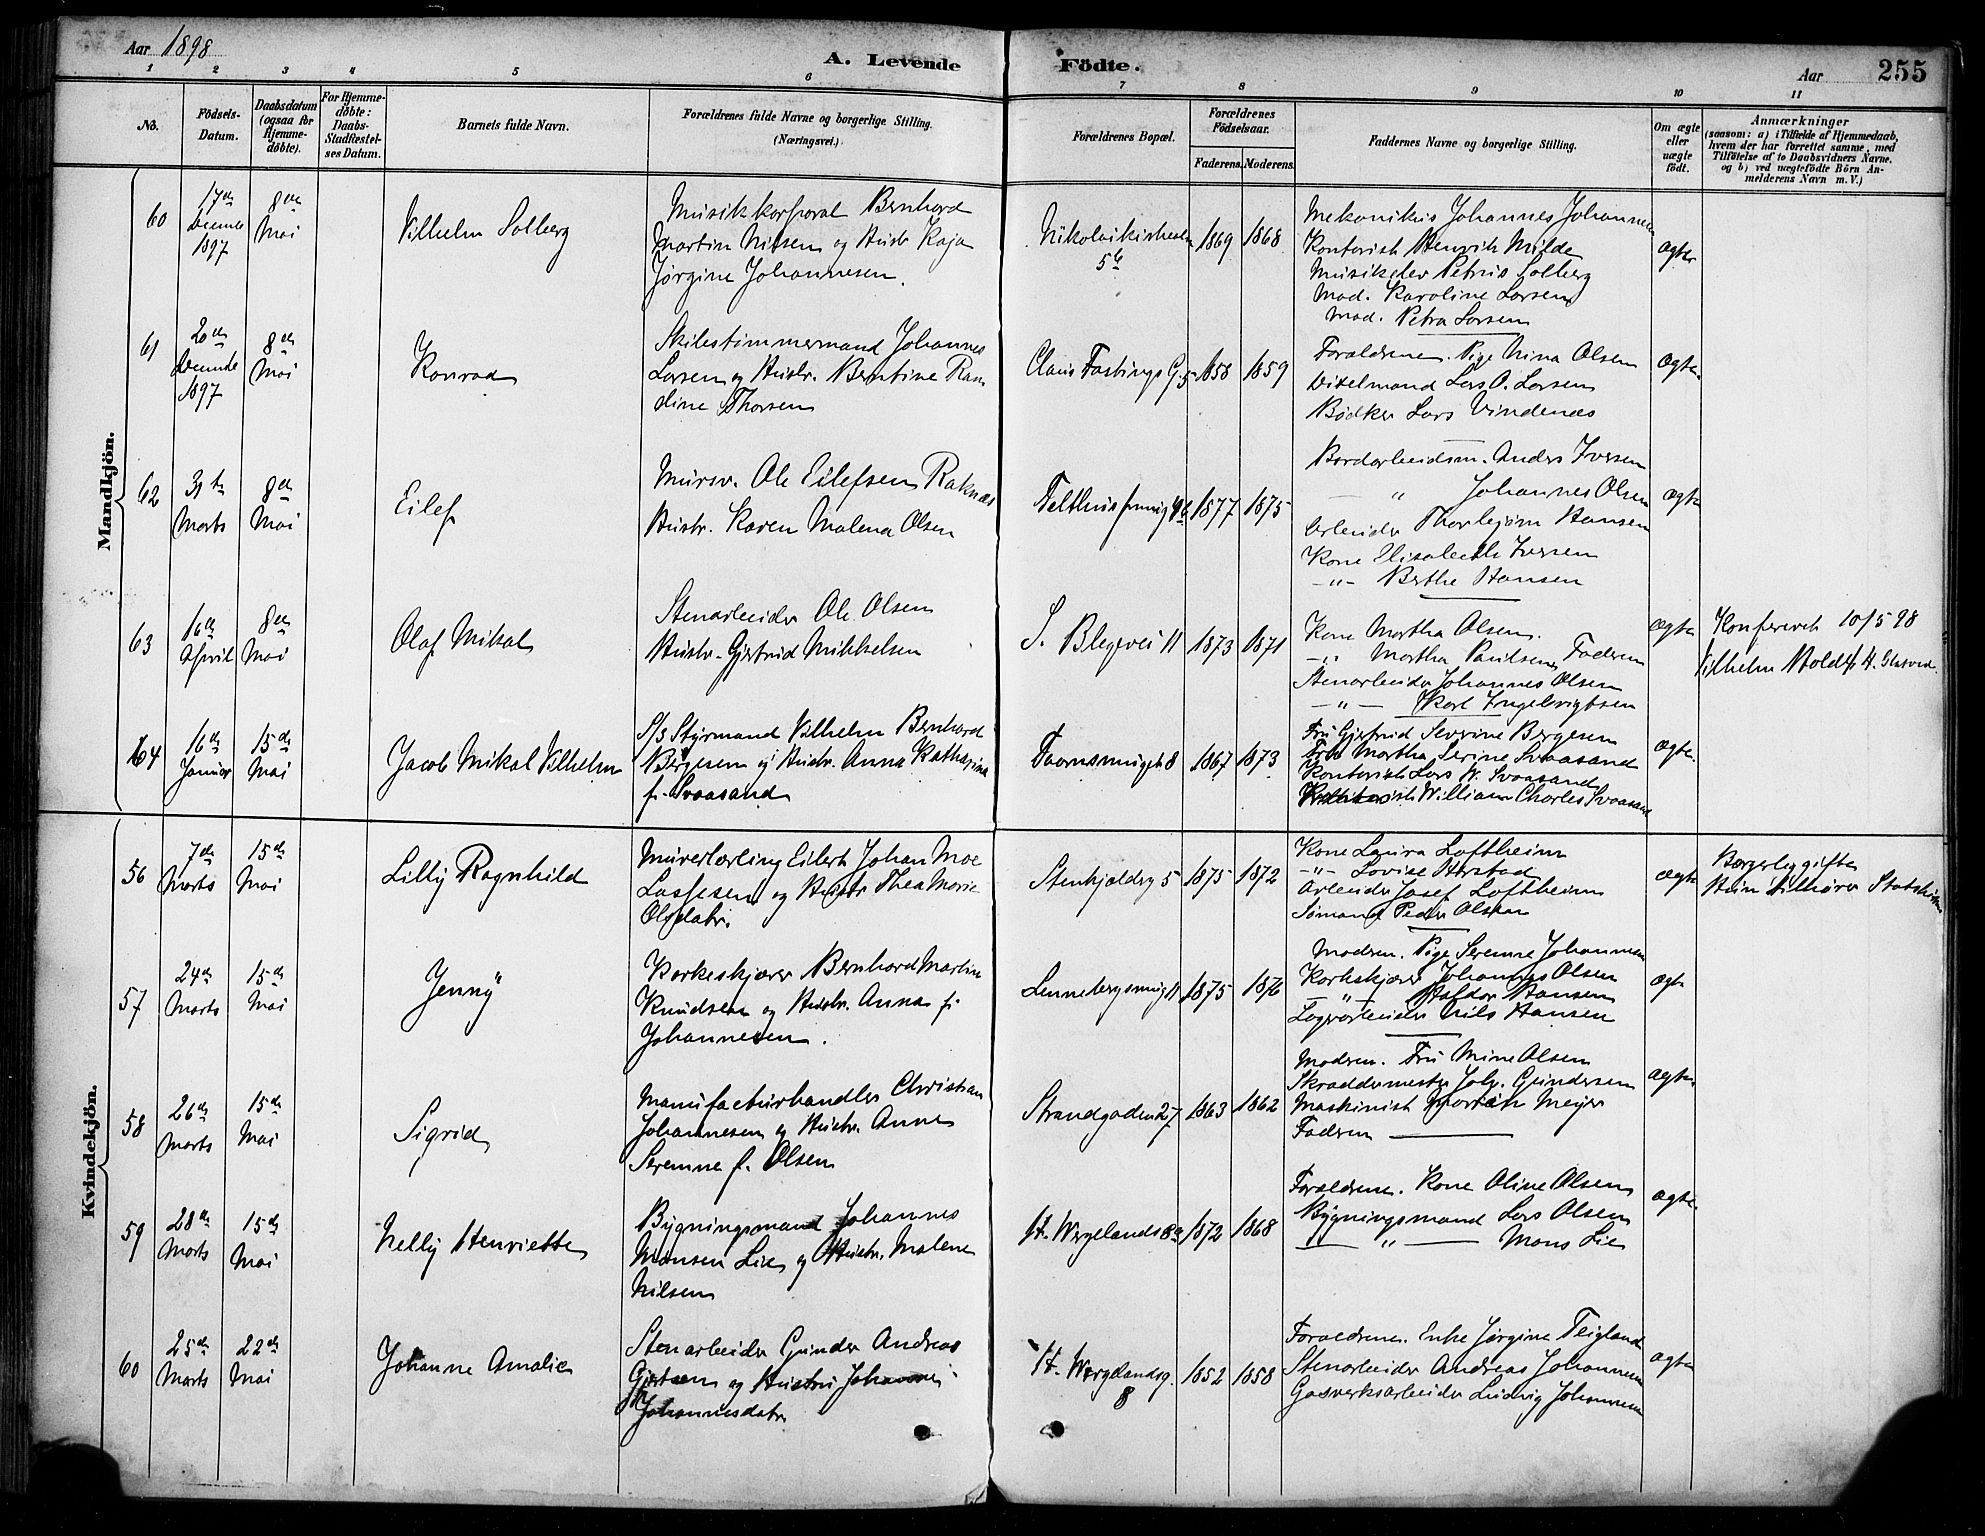 Aar 1898
A. Levende Födte.
Aar 255
1 2 3 4 5 6 7 8 9 10 11
No.
Födsels-Datum.
Daabsdatum (ogsaa for Hjemme-döbte).
For Hjemme-döbte: Daabs-Stadfæstel-ses Datum.
Barnets fulde Navn.
Forældrenes fulde Navne og borgerlige Stilling. (Næringsvei.)
Forældrenes Bopæl.
Forældrenes Födselsaar.
Faderens. Moderens.
Faddernes Navne og borgerlige Stilling.
Om ægte eller uægte födt.
Anmærkninger
(saasom: a) i Tilfælde af Hjemmedaab,
hvem der har forrettet samme, med
Tilföielse af to Daabsvidners Navne.
og b) ved uægtefödte Börn An-
melderens Navn m. V.)
Mandkjön.
60
17de
1897
8de
Mai
Vilhelm Solberg
Musikkorporal Bernhard
Martin Nilsen og Hustr Kaja
Jørgine Johannesen.
5b
1869 1868
Mekanikus Johannes Johannesen
Kontorist Henrik Milde
Musikelev Petrus Solberg
Mad. Karoline Larsen
Mad. Petra Larsen
ægte
61
20de
1897
8de
Mai
Konrad
Skibstimmermand Johannes
Larsen og Hustr. Bentine Ran
dine Thorsen
Claus Fastings G. 5
1858 1859
Forældrene. Pige Nina Olsen
Lars O. Larsen
Bødker Lars Vindenæs
ægte
62
31te
Marts
8de
Mai
Eilef
Mursv. Ole Eilefsen Raknæs
Hustr. Karen Malena Olsen
1877 1875
Bordarbeidsm. Anders Iversen
— " Johannes Olsen
Arbeider Thorbjørn Hansen
Kone Elisabeth Iversen
—"— Berthe Hansen
ægte
63
16de
April
8de
Mai
Olaf Mikal
Stenarbeider Ole Olsen
Hustr. Gjertrud Mikkelsen
S. Blegevei 11
1873 1871
Kone Martha Olsen.
—"— Martha Paulsen Faderen
Stenarbeider Johannes Olsen
—"— Karl Ingebrigtsen
ægte
Konfereret 10/5 98
Vilhelm
64
16de
Januar
15de
Mai
Jacob Mikal Vilhelm
S/S Styrmand Vilhelm Bernhard
Børgesen og Hustr. Anna Katharina
f. Svaasand
8
1867 1873
Fru Gjertrud Severine Børgesen
Fru Martha Serine Svaasand
Kontorist Lars W. Svaasand
William Charles Svaasand
ægte
Kvindekjön.
56
7de
Marts
15de
Mai
Lilly Ragnhild
Murerlærling Eilert Johan Moe
Lassesen og Hustr Thea Marie
Olsdatr.
Stenkjeldrg 5
1875 1872
Kone Laura Loftheim
—"— Lovise
Arbeider Josef Loftheim
Sømand Peder Olsen
ægte
Borgerlig gifte
Hun tilhører Statskirken
57
24de
Marts
15de
Mai
Jenny
Korkeskjærer Bernhard Martin
Knudsen og Hustr. Anna f.
Johannesen.
11
1875 1876
Modren. Pige Serenne Johannesen
Korkskjærer Johannes Olsen
—"— Haldor Hansen
Lagerarbeider Nils Hansen
ægte
58
26de
Marts
15de
Mai
Sigrid
Manufacturhandler Christian
Johannesen og Hustr. Anne
Serenne f. Olsen
Strandgaden 27
1863 1862
Modren. Fru Mine Olsen
Skræddermester Joh. Gundersen
Maskinist Martin Meyer
Fadren
ægte
59
28de
Marts
15de
Mai
Nelly Henriette
Bygningsmand Johannes
Monsen Lie og Hustr. Malene
Nilsen
H. Wergelands 8a
1872 1868
Forældrene. Kone Oline Olsen
Bygningsmand Lars Olsen
— " — Mons Lie
ægte
60
25de
Marts
22de
Mai
Johanne Amalie
Stenarbeider Gunder Andreas
og Hustru
Johannesdatr
H. Wergelandsg.
8
1852 1858
Forældrene. Enke Jørgine Teigland
Stenarbeider Andreas Johannesen
Gasverksarbeider Ludvig Johannesen
ægte